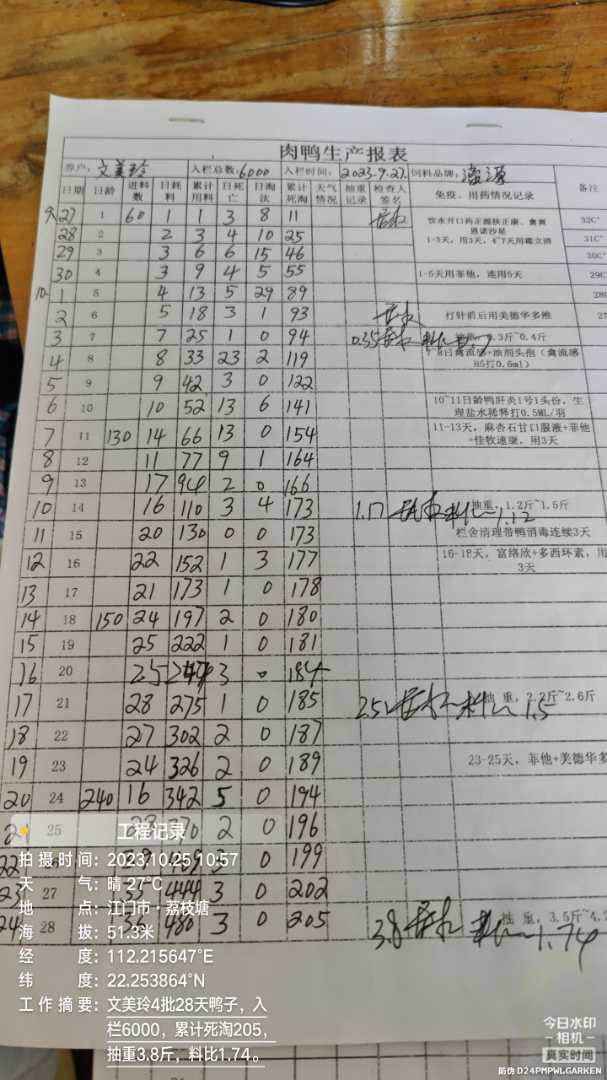 肉鸭生产报表
养户: 文美玲 入栏总数: 6000 入栏时间: 2023.9.27. 饲料品牌:
日期 日龄 进料数 日耗料 累计用料 日死亡 日淘汰 累计死淘 天气情况 抽重记录 检查人签名 免疫、用药情况记录 备注
9. 27 1 60 1 1 3 8 11 饮水开口药正源扶正康、禽爽恩诺沙星 32C°
28 2 2 3 4 10 25 1-3天,用3天,6~7天用霉立消 31C°
29 3 3 6 6 15 46 30C°
30 4 3 9 4 5 55 1-5天用菲他,连用5天 29C
10. 1 5 4 13 5 29 89 28
2 6 5 18 3 1 93 打针前后用美德华多维 27
3 7 7 25 1 0 94 0.35 0.3斤~0.4斤
4 8 8 33 23 2 119 8日禽流感+油剂头孢(禽流感H5打0.6ml)
5 9 9 42 3 0 122
6 10 10 52 13 6 141 10~11日龄鸭肝炎1号1头份,生理盐水稀释打0.5ML/羽
7 11 130 14 66 13 0 154 11-13天,麻杏石甘口服液+菲他+佳牧速康,用3天
8 12 11 77 9 1 164
9 13 17 94 2 0 166
10 14 16 110 3 4 173 1.17 料比1.12 抽重,1.2斤~1.5斤
11 15 20 130 0 0 173 栏舍清理带鸭消毒连续3天
12 16 22 152 1 3 177 16-18天,富络欣+多西环素,用3天
13 17 21 173 1 0 178
14 18 150 24 197 2 0 180
15 19 25 222 1 0 181
16 20 25 247 3 0 184
17 21 28 275 1 0 185 2.5 料比1.5 抽重,2.2斤~2.6斤
18 22 27 302 2 0 187
19 23 24 326 2 0 189 23-25天,菲他+美德华多
20 24 240 16 342 5 0 194
25 2 0 196
22 3 0 199
23 27 35 444 3 0 202
24 28 480 3 0 205 3.8 料比1.74 抽重,3.5斤~4.
工程记录
拍摄时间: 2023.10.25 10:57
天气: 晴 27℃
地点: 江门市·荔枝塘
海拔: 51.3米
经度: 112.215647°E
纬度: 22.253864°N
工作摘要: 文美玲4批28天鸭子,入
栏6000,累计死淘205,
抽重3.8斤,料比1.74。
今日水印
-相机-
真实时间
防伪 D24PMPWLGARKEN